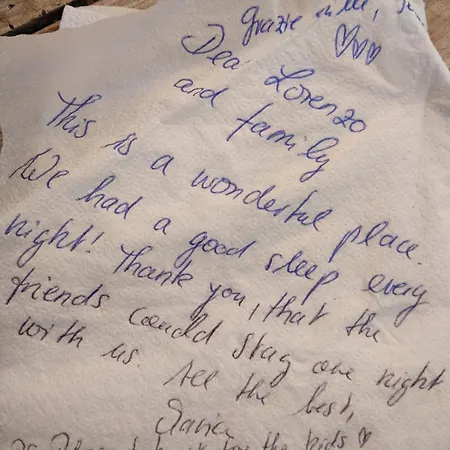 Grazie mille,
Dear Lorenzo
and family
This is a wonderful place.
We had a good sleep every
night! Thank you, that the
friends could stay one night
with us. All the best,
for the kids ♡